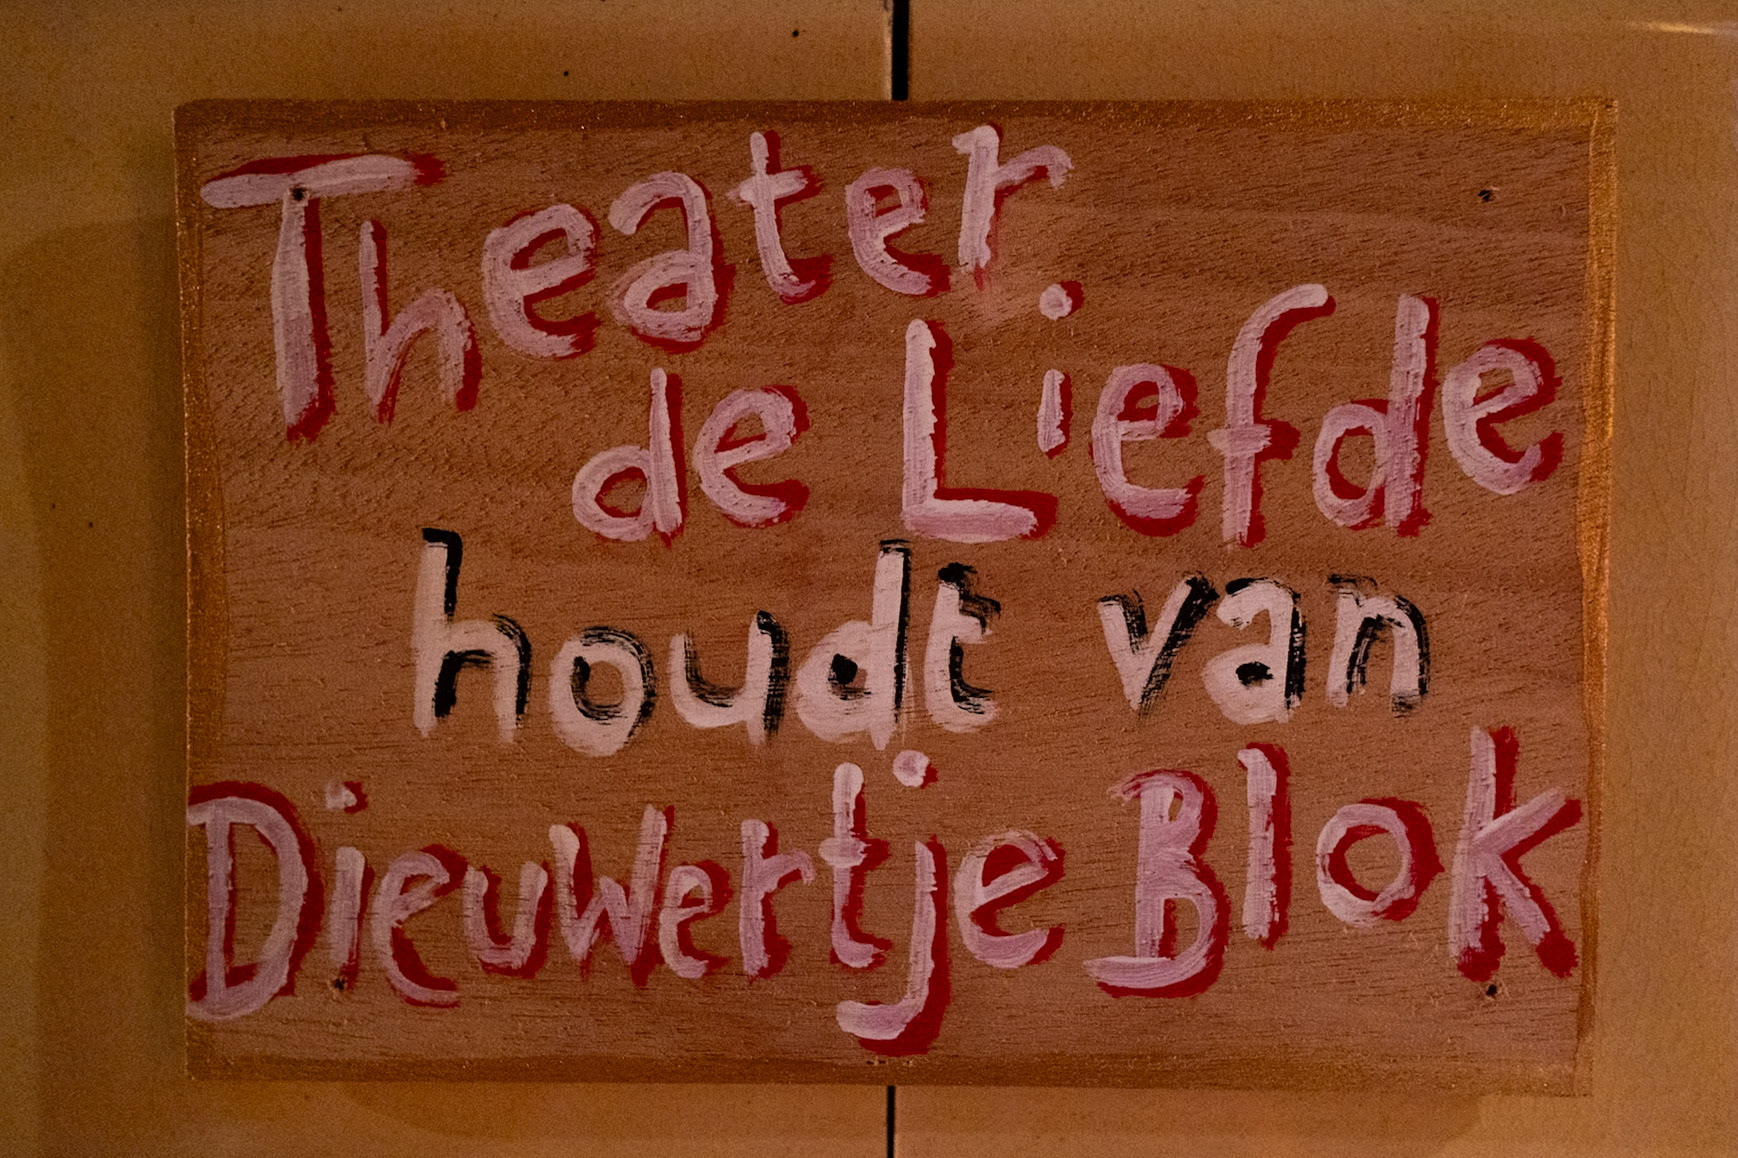 Theater
de Liefde
houdt van
Dieuwertje Blok